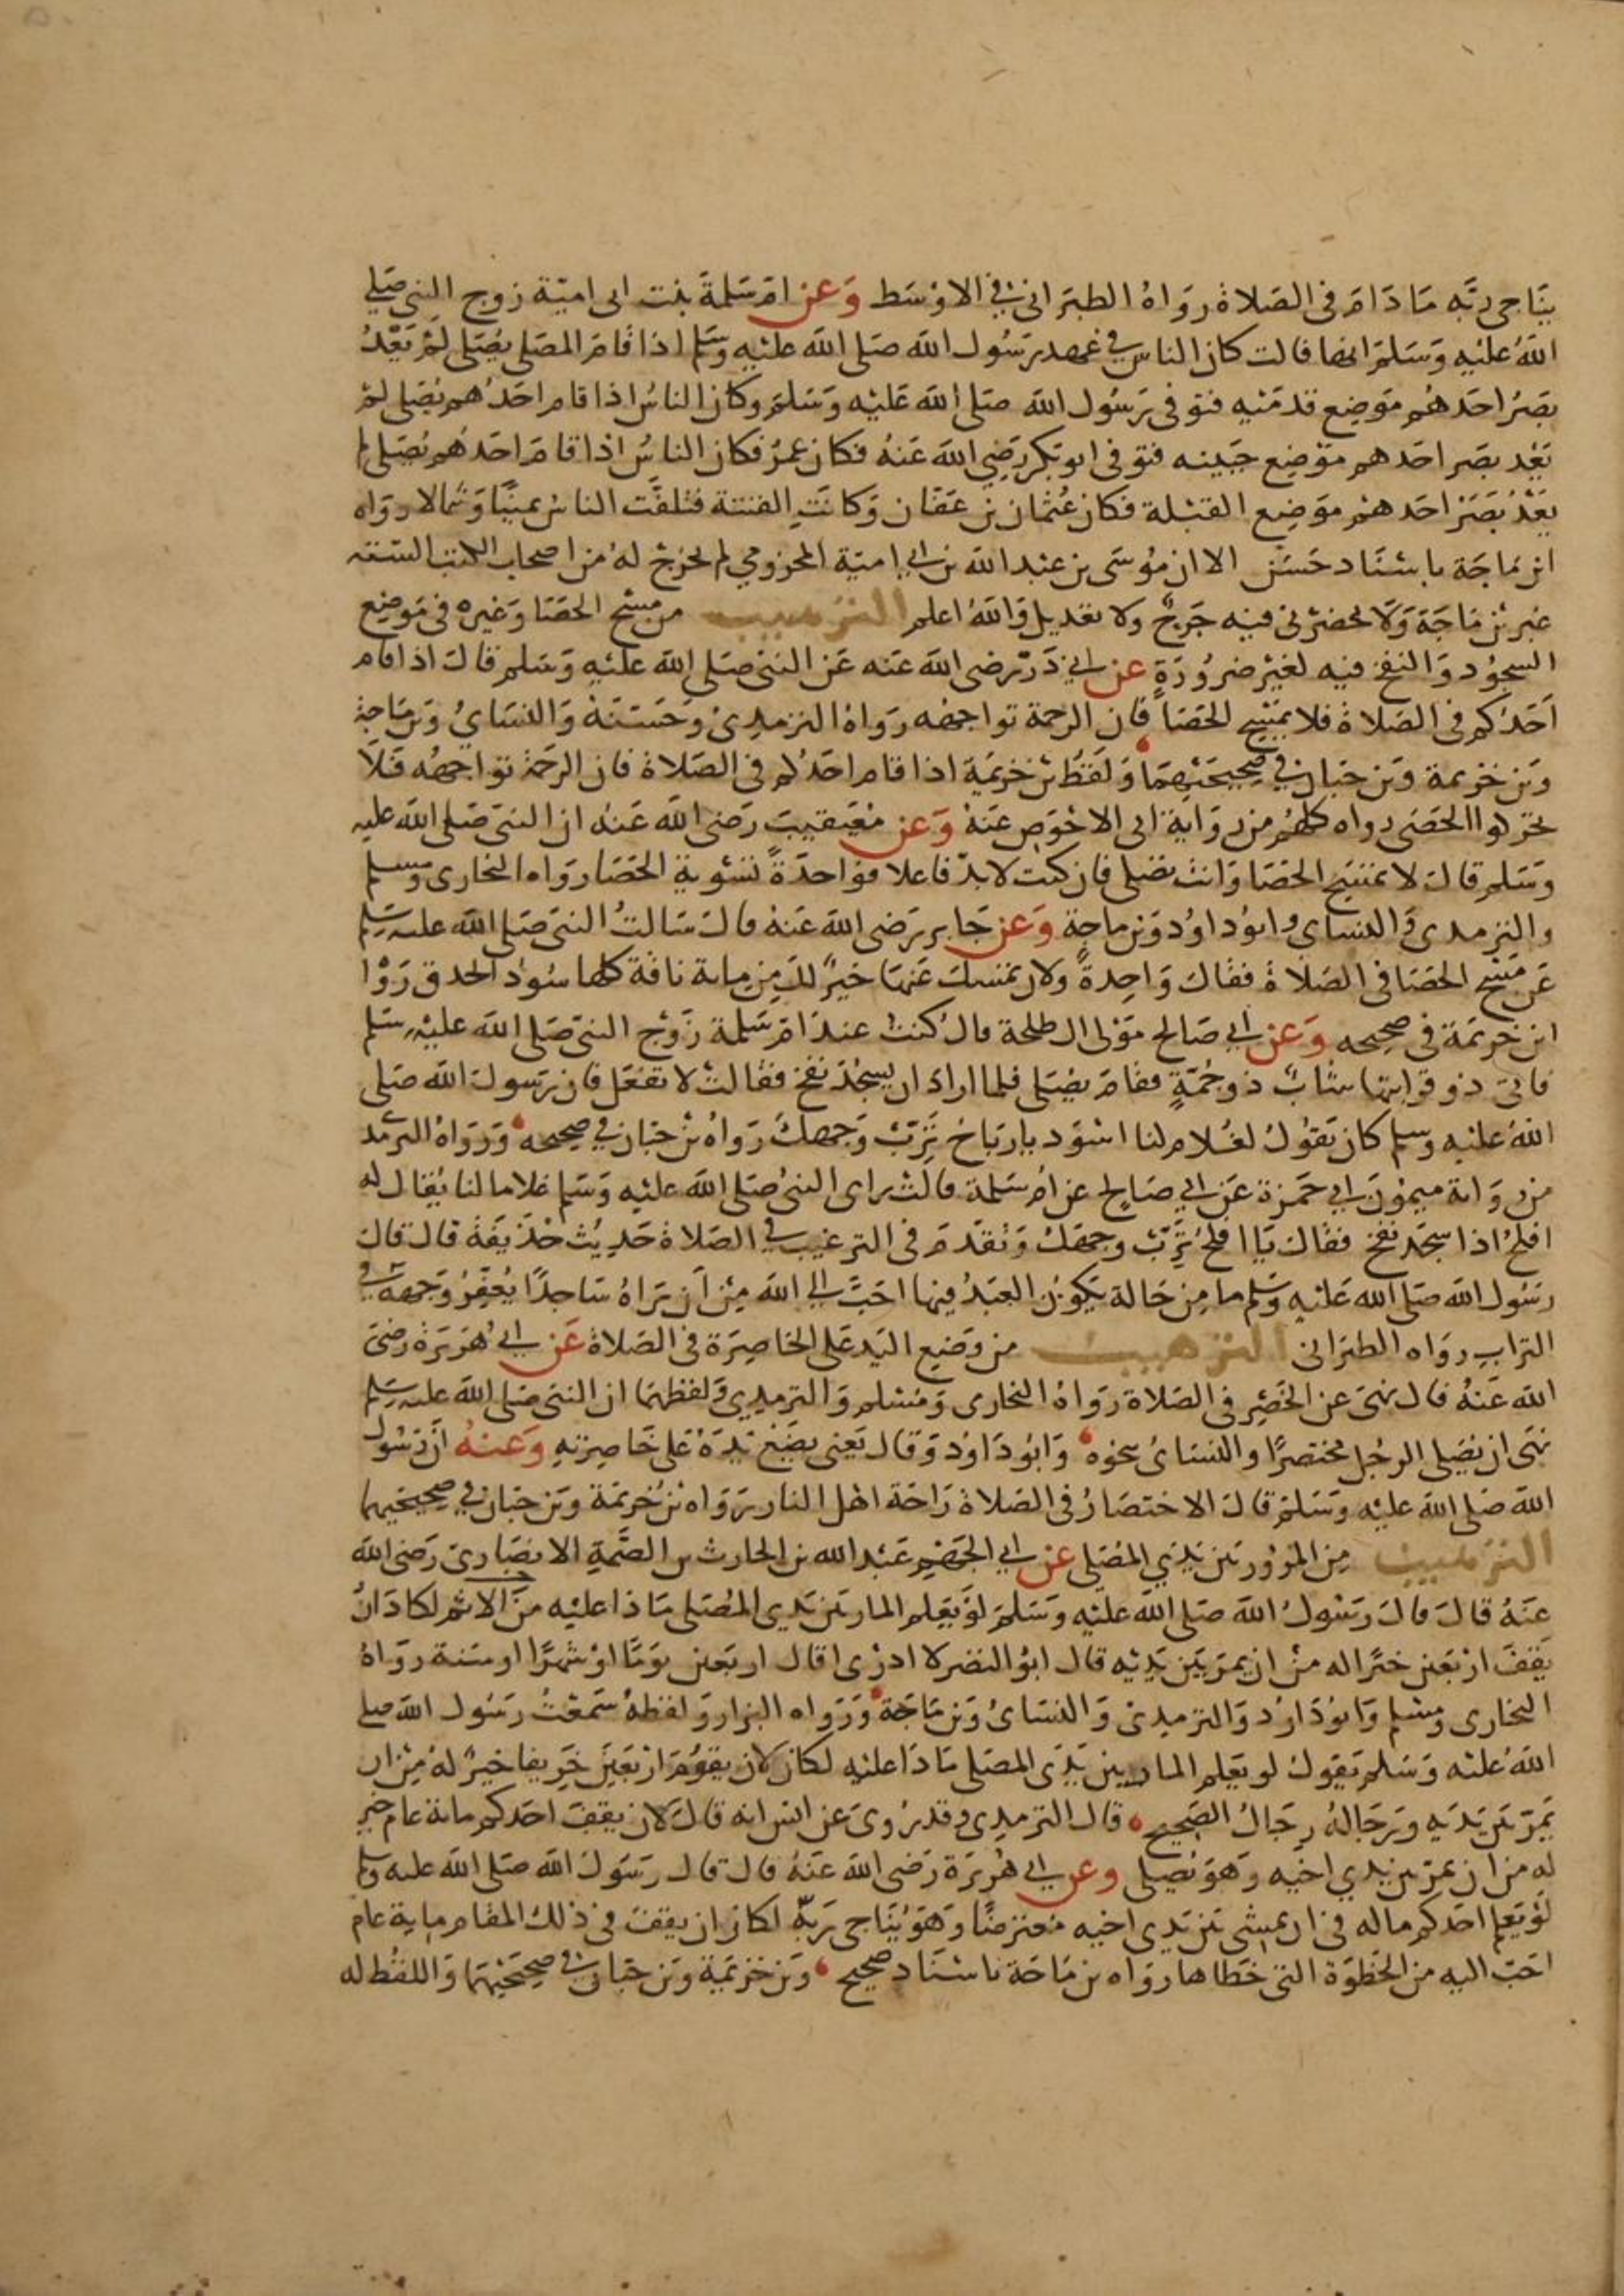 يناجى ربَّه مَا دَامَ فى الصَلاة روَاهُ الطبَرانى فى الاوْسَط وَعن امّ سَلمةَ بنت ابى اميّة زوج النبى صَلى
اللهُ عليْهِ وَسَلمَ انها قالت كان الناس فى عَهد رَسُول الله صَلى الله عليْه وسَلم اذا قامَ المصَلى يُصَلى لمْ يَعْدُ
بصَرُ احَدهُم مَوضِع قدمَيْه فتوفى رَسُول الله صَلى الله عَليْه وَسَلمَ وكانَ الناسُ اذا قام احَدُهم يُصَلى لمْ
يَعْد بصَر احَدهم موْضِع جَبينه فتوفى ابو بَكر رَضِى الله عَنهُ فكان عمرُ فكان الناسُ اذا قامَ احَدُهم يُصَلى لم
يَعْدُ بَصَرُ احَدهمْ موَضِع القبْلة فكان عُثمان بن عَفان وَكانَتِ الفتنة فتلفّت الناسُ يَمينًا وَشمالا روَاه
ابن مَاجَة باسْنَاد حَسَن الا ان مُوسَى بن عبْد الله بن ابى اميّة المخزومي لم يخرج لهُ من اصحاب الكتب الستة
غير بن مَاجَة وَلَا يحضرُنى فيْه جَرحٌ ولا تعْديل وَاللهُ اعلم الترهيب من مسْح الحصَا وَغيره فى مَوضِع
السجُود وَالنفخ فيه لغيْر ضرُورَةٍ عن ابى ذَرّ رضى الله عَنه عَن النبى صَلى الله عليْهِ وَسَلم قالَ اذا قام
اَحَدُكم فى الصَلاة فلا يَمْسَح الحَصَا فان الرحمة تواجهُه رَواهُ الترمِذىُ وَحَسّنهُ وَالنسَائُ وَبن مَاجة
وَبن خزيمة وَبن حبَان فى صَحيحَيْهمَا وَلفظُ بن خزيمَة اذا قام احَدُكم فى الصَلاة فان الرحمة تواجهُه فَلَا
تحركوا الحَصَى رواه كلهُم من روَاية ابى الاحْوَص عَنهُ وَعن معَيْقيب رَضى الله عَنه ان النبى صَلى الله عليه
وَسَلم قالَ لا تمسَح الحَصَا وَانت تصَلى فان كنت لابدّ فاعلا فوَاحدةً تسْوية الحَصَا روَاه البخارى ومسلم
والترمذى وَالنسَاى وابوُ داوُد وَبن ماجةٍ وَعن جَابر رَضى الله عَنهُ قالَ سَالتُ النبى صَلى الله عليه وسَلم
عَن مَسْح الحَصَا فى الصَلَاة فقالَ وَاحِدةً ولان تمْسك عَنها خيْرٌ لكَ مِن مِاية نَاقة كلها سُودُ الحدق رَوا
ابن خزيمَة فى صَحيحه وَعن ابى صَالح مَوْلى ال طلحة قالَ كنتُ عندَ امّ سَلمة زَوْج النبىّ صَلى الله عليْه وسَلم
فاتى ذو قرابتها شابٌ ذو جُمّةٍ فقامَ يصَلى فلما ارادَ ان يسْجُدَ نفخ فقالتْ لا تفعَل فان رَسولَ الله صَلى
اللهُ عليْه وسلم كان يَقوُلُ لغُلام لنا اسْوَد يا ربَاحُ تَرّبْ وَجهكَ رَواهُ بنُ حبَان فى صحيحه وَرَوَاهُ الترمذ
من روَاية ميموُن ابى حَمزة عَن ابى صَالح عن امّ سَلمة قالتْ راى النبىُ صَلى الله عليْه وَسَلم غلاما لنا يُقال له
افلحُ اذا سجَدَ نفخ فقالَ يَا افلحُ تَرّبْ وجهَكَ وَتقدّمَ فى الترغيب فى الصَلاة حَديْث حُذيفَة قالَ قالَ
رسُول الله صَلى الله عَليْه وسَلم ما مِن حَالة يَكوُن العَبْدُ فيها احَبّ الى الله مِنْ اَن يَراهُ سَاجدًا يُعَفّرُ وَجهه فى
الترابِ روَاه الطبرانى الترهيب من وَضِع اليَد عَلى الخاصِرَة فى الصَلاة عَن ابى هُرَيرَة رَضىَ
الله عَنهُ قالَ نهىَ عن الخَصْرِ فى الصَلاة رَوَاهُ البخارى وَمُسْلم وَالترمذى وَلفظهمَا ان النبى صَلى الله عليه وسَلم
نهَى ان يُصَلى الرجُل مختصرًا والنسَائُ نحوه وَابوُ دَاوُد وَقالَ يَعنى يضَعُ يَدَهُ عَلى خَاصِرَتهِ وَعنهُ اَن رَسُول
الله صَلى الله عليْه وَسَلمَ قالَ الاختصَارُ فى الصَلاة رَاحَة اهل النار رَوَاه بنُ خزيمَة وَبن حبَان فى صَحيحَيْهما
الترهيب مِن المرُور بَين يَدَى المصَلى عن ابى الجهَيْم عَبْد الله بن الحارث بن الصّمّةِ الانصَارىَ رَضى الله
عَنهُ قالَ قالَ رسُولُ الله صَلى الله عليْه وَسَلمَ لَوْ يَعْلم المار بَين يَدى المُصَلى مَاذا عليْه مِنَ الاثم لكانَ انْ
يَقِفَ ارْبَعين خيْرًا له مِنْ ان يمر بَيْن يَدَيْه قال ابوُ النضر لا ادرْى اقال اربَعين يوَمًا اوْ شهْرًا او سَنة روَاهُ
البخارى ومسْلم وَابوُ دَاوُد وَالترمذىُ وَالنسَائُ وَبن مَاجَة وَرَوَاه البزار وَلفظهُ سَمعْتُ رَسُول الله صلى
اللهُ عليْه وَسَلم يَقولُ لو يَعلم المار بين يَدَى المصَلى مَاذَا عليْهِ لكان لان يقوُمَ ارْبَعيَن خَريفا خيرٌ لهُ مِنْ ان
يَمرّ بَين يَدَيهِ وَرجَالهُ رجَالُ الصَحيح قال الترمذى وقد رُوىَ عن انس انه قالَ لان يقفَ احَدكم مائة عام خير
له من ان يمرّ بين يدي اخيْه وَهوَ يُصَلى وعن ابى هُريرَة رَضى الله عَنهُ قالَ قالَ رسَولُ الله صَلى الله عليه وسلم
لَوْ يَعلم احَدُكم ما له فى ان يمشى بَين يَدى اخيْه معترضًا وَهوَ يُنَاجى رَبّه لكان ان يقفَ فى ذلكَ المقام ماية عام
احَبّ اليه من الخَطوَة التى خَطاها روَاه بن مَاجَة باسْنَاد صَحيح وَبن خزيمَة وَبن حبَان فى صَحيحَيْهمَا وَاللفظ له